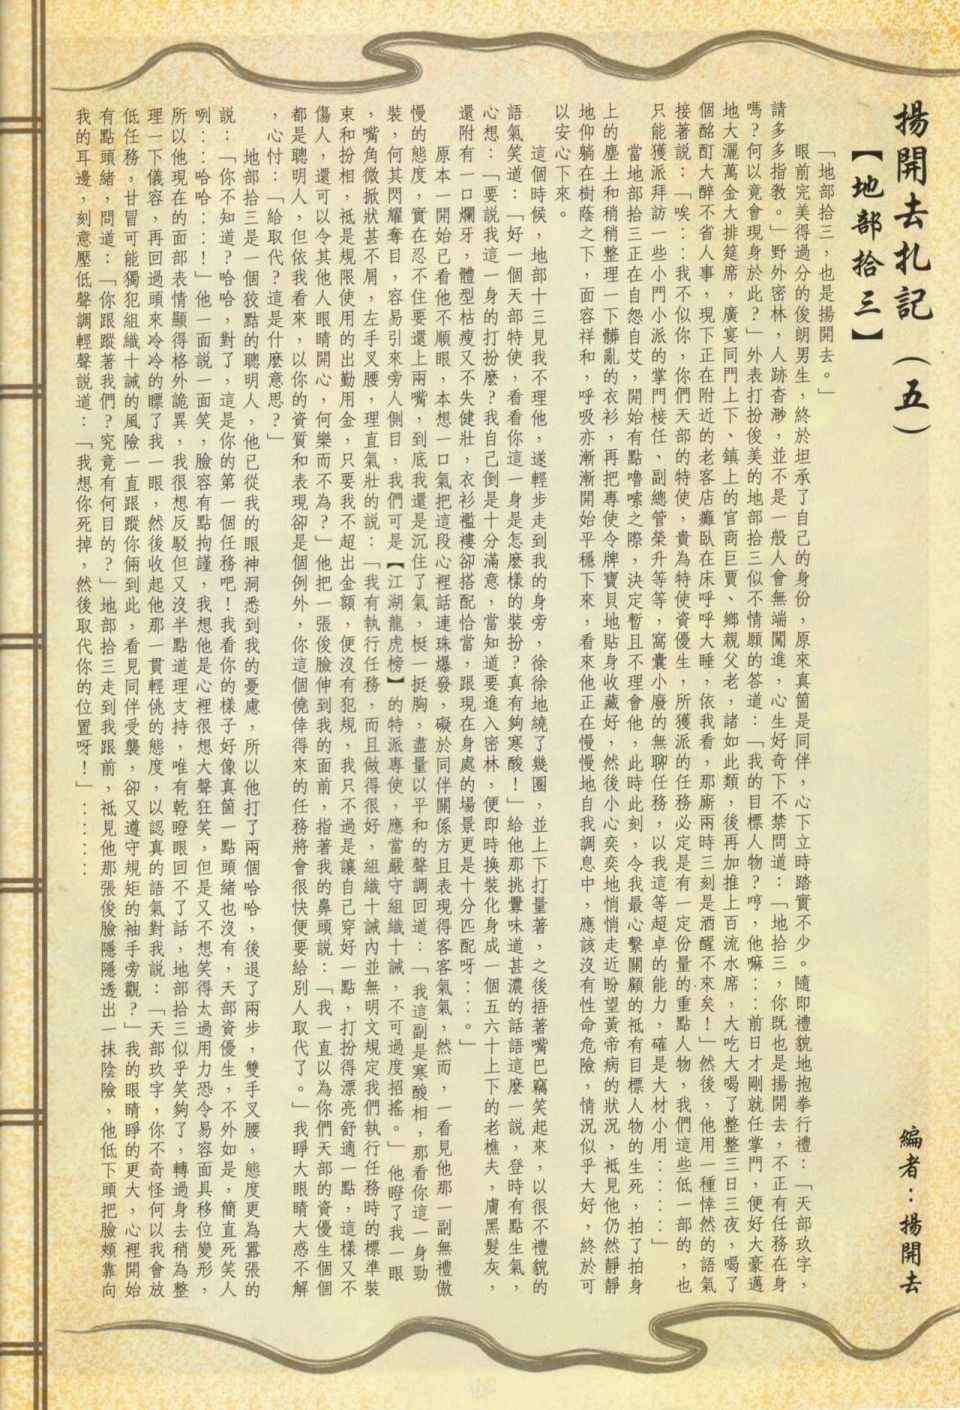 揚開去札記（五）
編者：揚開去
【地部拾三】
「地部拾三，也是揚開去。」
眼前完美得過分的俊朗男生，終於坦承了自己的身份，原來真箇是同伴，心下立時踏實不少。隨即禮貌地抱拳行禮：「天部玖字，
請多多指教。」野外密林，人跡杳渺，並不是一般人會無端闖進，心生好奇下不禁問道：「地拾三，你既也是揚開去，不正有任務在身
嗎？何以竟會現身於此？」外表打扮俊美的地部拾三似不情願的答道：「我的目標人物？哼，他嘛：：前日才剛就任掌門，便好大豪邁
地大灑萬金大排筵席，廣宴同門上下、鎮上的官商巨賈、鄉親父老，諸如此類，後再加推上百流水席，大吃大喝了整整三日三夜，喝了
個酩酊大醉不省人事，現下正在附近的老客店癱臥在床呼呼大睡，依我看，那廝兩時三刻是酒醒不來矣！」然後，他用一種悻然的語氣
接著說：「唉：：我不似你，你們天部的特使，貴為特使資優生，所獲派的任務必定是有一定份量的重點人物，我們這些低一部的，也
只能獲派拜訪一些小門小派的掌門接任、副總管榮升等等，窩囊小廢的無聊任務，以我這等超卓的能力，確是大材小用：：：：」
當地部拾三正在自怨自艾，開始有點嚕嗦之際，決定暫且不理會他，此時此刻，令我最心繫關顧的祗有目標人物的生死，拍了拍身
上的塵土和稍稍整理一下髒亂的衣衫，再把專使令牌寶貝地貼身收藏好，然後小心奕奕地悄悄走近盼望黃帝病的狀況，祗見他仍然靜靜
地仰躺在樹蔭之下，面容祥和，呼吸亦漸漸開始平穩下來，看來他正在慢慢地自我調息中，應該沒有性命危險，情況似乎大好，終於可
以安心下來。
這個時候，地部十三見我不理他，遂輕步走到我的身旁，徐徐地繞了幾圈，並上下打量著，之後捂著嘴巴竊笑起來，以很不禮貌的
語氣笑道：「好一個天部特使，看看你這一身是怎麼樣的裝扮？真有夠寒酸！」給他那挑釁味道甚濃的話語這麼一說，登時有點生氣，
心想：「要說我這一身的打扮麼？我自己倒是十分滿意，當知道要進入密林，便即時換裝化身成一個五六十上下的老樵夫，膚黑髮灰，
還附有一口爛牙，體型枯瘦又不失健壯，衣衫襤褸卻搭配恰當，跟現在身處的場景更是十分匹配呀：：。」
原本一開始已看他不順眼，本想一口氣把這段心裡話連珠爆發，礙於同伴關係方且表現得客客氣氣，然而，一看見他那一副無禮傲
慢的態度，實在忍不住要還上兩嘴，到底我還是沉住了氣，梃一挺胸，盡量以平和的聲調回道：「我這副是寒酸相，那看你這一身勁
裝，何其閃耀奪目，容易引來旁人側目，我們可是【江湖龍虎榜】的特派專使，應當嚴守組織十誡，不可過度招搖。」他瞪了我一眼
，嘴角微掀狀甚不屑，左手叉腰，理直氣壯的說：「我有執行任務，而且做得很好，組織十誡內並無明文規定我們執行任務時的標準裝
束和扮相，祗是規限使用的出勤用金，只要我不超出金額，便沒有犯規，我只不過是讓自己穿好一點，打扮得漂亮舒適一點，這樣又不
傷人，還可以令其他人眼睛開心，何樂而不為？」他把一張俊臉伸到我的面前，指著我的鼻頭說：「我一直以為你們天部的資優生個個
都是聰明人，但依我看來，以你的資質和表現卻是個例外，你這個僥倖得來的任務將會很快便要給別人取代了。」我睜大眼睛大惑不解
，心忖：「給取代？這是什麼意思？」
地部拾三是一個狡黠的聰明人，他已從我的眼神洞悉到我的憂慮，所以他打了兩個哈哈，後退了兩步，雙手叉腰，態度更為囂張的
說：「你不知道？哈哈，對了，這是你的第一個任務吧！我看你的樣子好像真箇一點頭緒也沒有，天部資優生，不外如是，簡直死笑人
咧：：哈哈：：！」他一面說一面笑，臉容有點拘謹，我想他是心裡很想大聲狂笑，但是又不想笑得太過用力恐令易容面具移位變形，
所以他現在的面部表情顯得格外詭異，我很想反駁但又沒半點道理支持，唯有乾瞪眼回不了話，地部拾三似乎笑夠了，轉過身去稍為整
理一下儀容，再回過頭來冷冷的瞟了我一眼，然後收起他那一貫輕佻的態度，以認真的語氣對我說：「天部玖字，你不奇怪何以我會放
低任務，甘冒可能獨犯組織十誡的風險一直跟蹤你倆到此，看見同伴受襲，卻又遵守規矩的袖手旁觀？」我的眼睛睜的更大，心裡開始
有點頭緒，問道：「你跟蹤著我們？究竟有何目的？」地部拾三走到我跟前，祗見他那張俊臉隱隱透出一抹陰險，他低下頭把臉頰靠向
我的耳邊，刻意壓低聲調輕聲說道：「我想你死掉，然後取代你的位置呀！」：：：：：